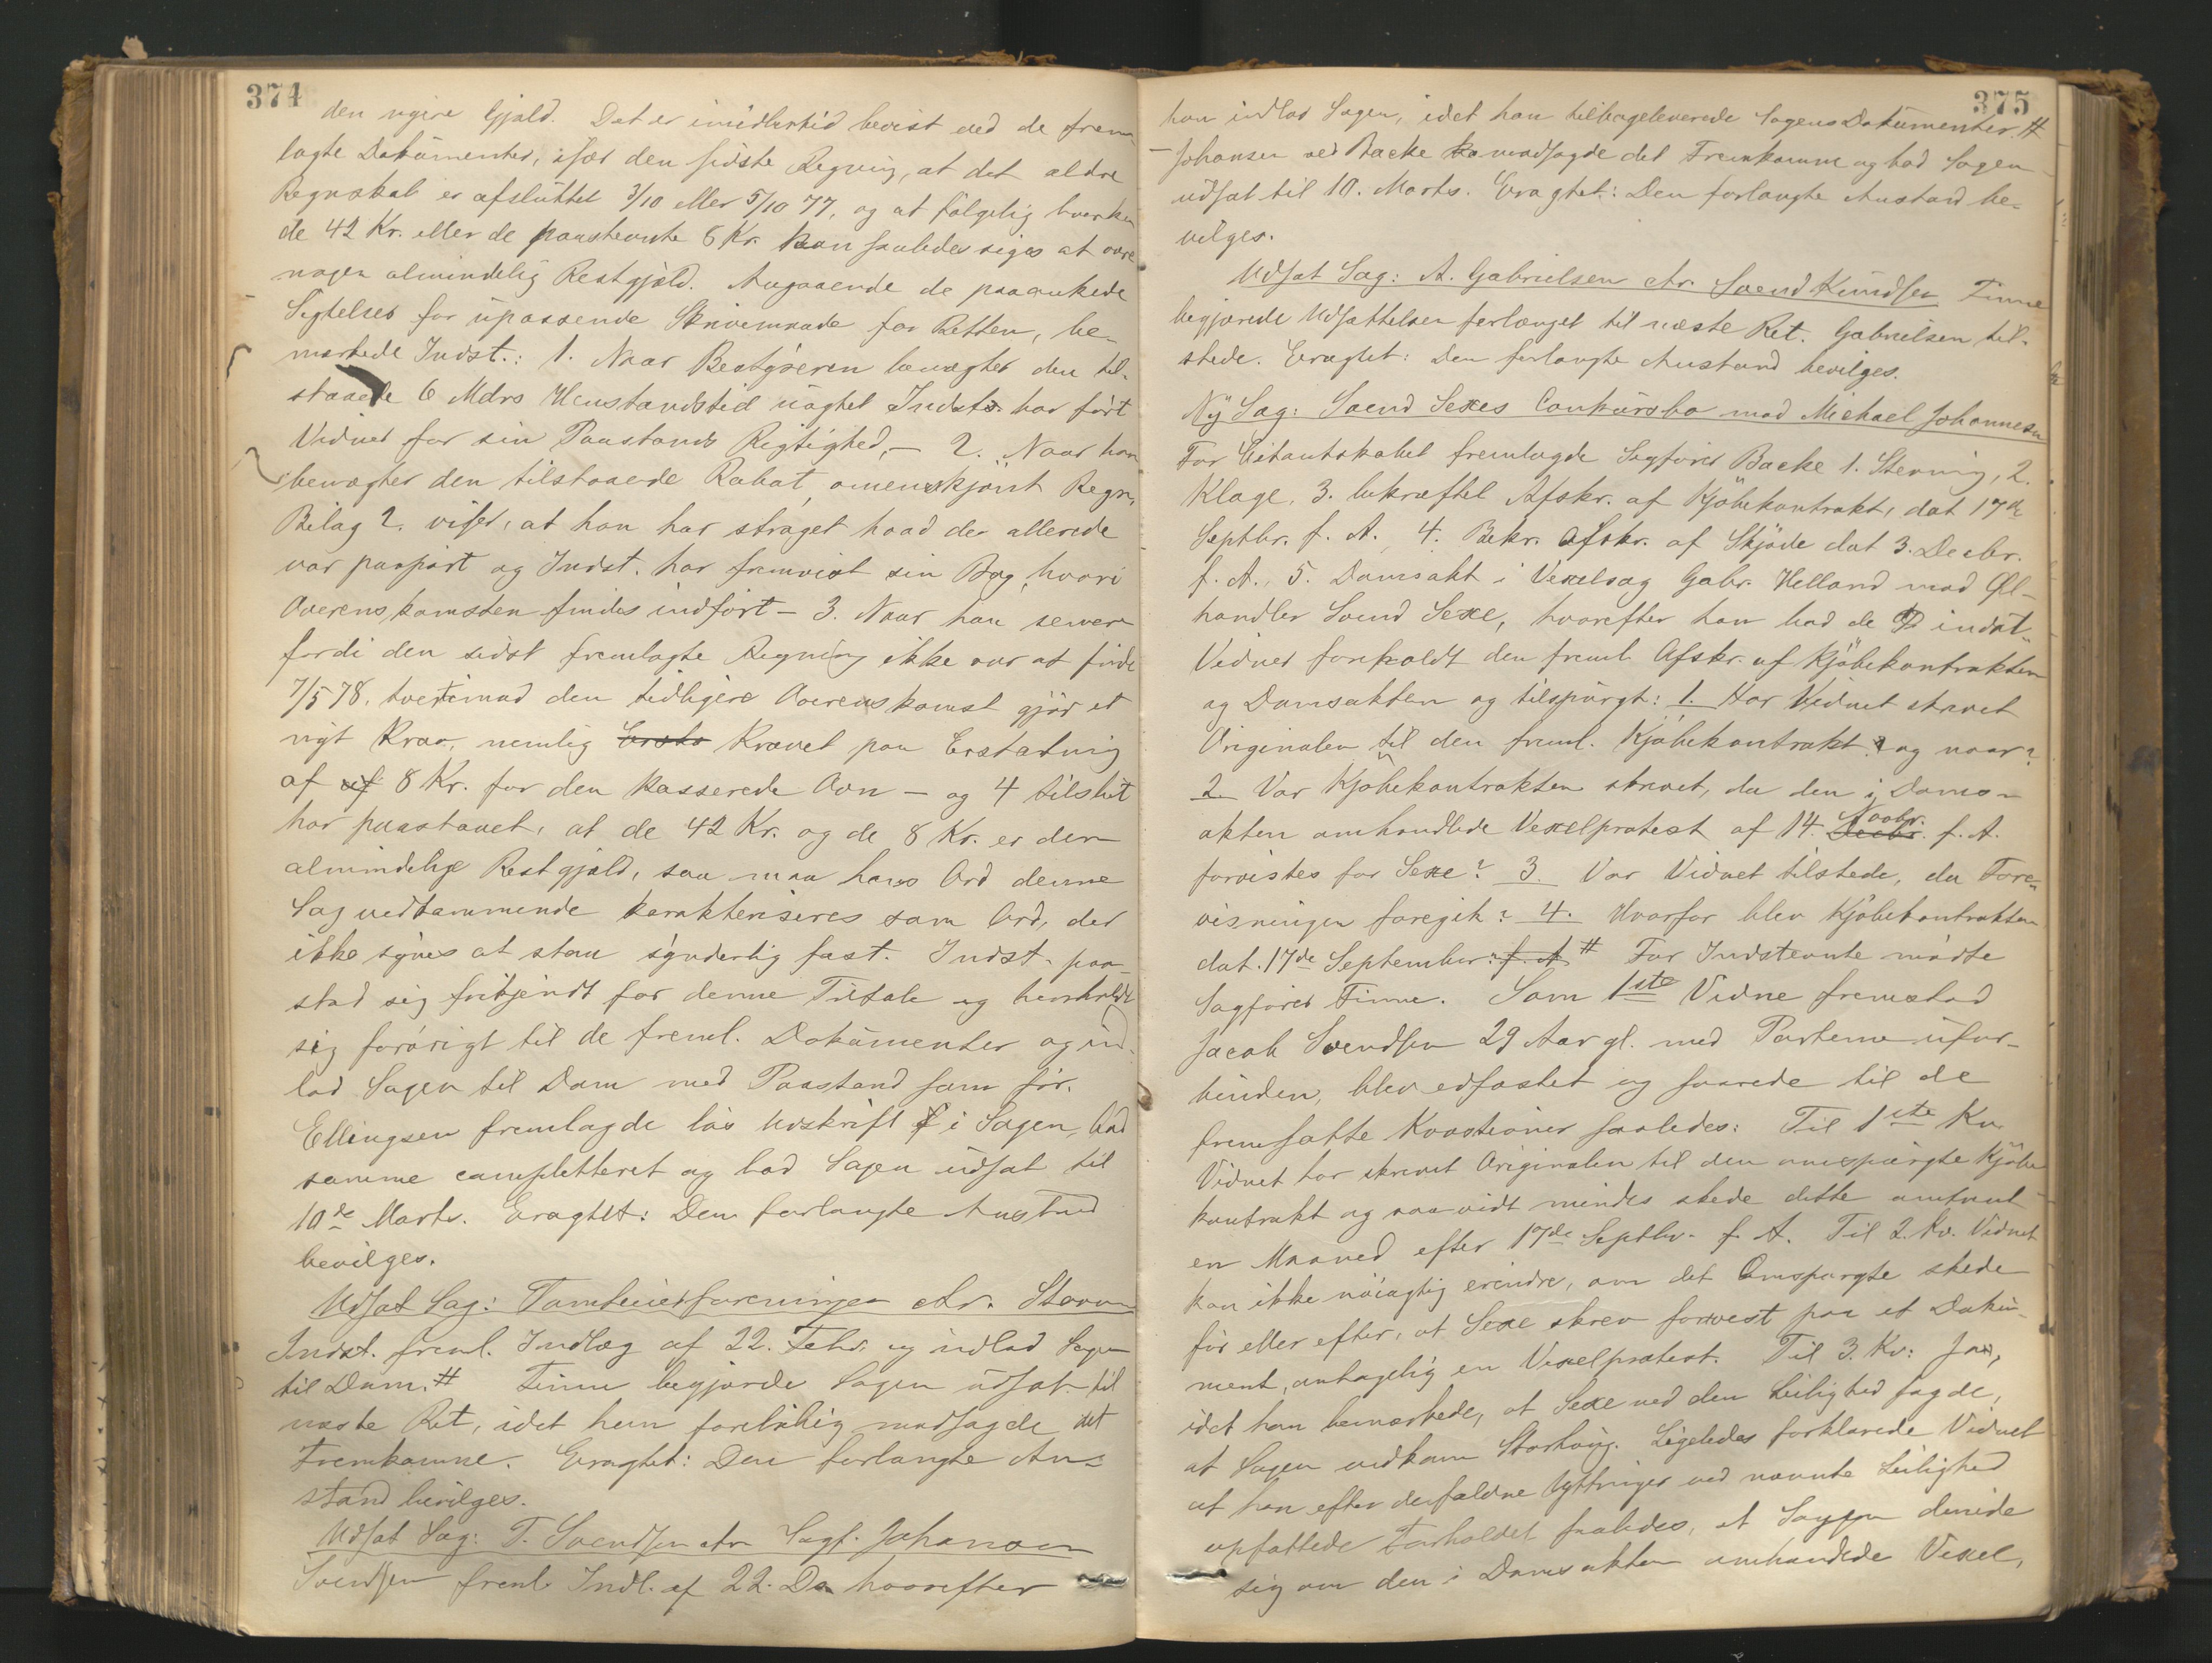 374
den nyere Gjæld. Det er imidlertid bevist ved de frem-
lagte Dokumenter, især den sidste Regning, at det ældre
Regnskab er afsluttet 3/10 eller 5/10 77, og at følgelig hverken
de 42 Kr. eller de paastevnte 8 Kr. kan saaledes siges at være
nogen almindelig Restgjæld. Angaaende de paaankede
Sigtelser for upassende Skrivemaade for Retten, be-
mærkede Indst.: 1. Naar Bestyreren benægter den til-
staaede 6 Mdrs Henstandstid uagtet Indst. har ført
Vidner for sin Paastands Rigtighed, — 2. Naar han
benægter den tilstaaede Rabat, omendskjønt Regn.
Bilag 2. viser, at han har strøget hvad der allerede
var paaført og Indst. har fremvist sin Bog, hvori
Overenskomsten findes indført — 3. Naar han
fordi den sidst fremlagte Regning ikke var at finde
7/5 78, tvertimod den tidligere Overenskomst gjør et
nyt Krav, nemlig Kravet paa Erstatning
af 8 Kr. for den kasserede Ovn — og 4 tilslut
har paastaaet, at de 42 Kr. og de 8 Kr. er den
almindelige Restgjæld, saa maa hans Ord denne
Sag vedkommende karakteriseres som Ord, der
ikke synes at staa synderlig fast. Indst. paa-
stod sig frikjendt for denne Tiltale og henholdt
sig forøvrigt til de freml. Dokumenter og ind-
lod Sagen til Dom med Paastand som før.
Ellingsen fremlagde løs Udskrift i Sagen, bad
samme completteret og bad Sagen udsat til
10de Marts. Eragtet: Den forlangte Anstand
bevilges.
Udsat Sag: Tomteeierforeningen ctr. Stavan
Indst. freml. Indlæg af 22. Febr. og indlod Sagen
til Dom. # Finne begjærede Sagen udsat til
næste Ret, idet han foreløbig modsagde det
Fremkomne. Eragtet: Den forlangte An-
stand bevilges.
Udsat Sag: T. Svendsen ctr Sagf. Johansen
Svendsen freml. Indl. af 22. Ds. hvorefter
375
han indlod Sagen, idet han tilbageleverede Sagens Dokumenter. #
Johansen ved Backe modsagde det Fremkomne og bad Sagen
udsat til 10. Marts. Eragtet: Den forlangte Anstand be-
vilges.
Udsat Sag: A. Gabrielsen ctr. Svend Knudsen Finne
begjærede Udsættelsen forlænget til næste Ret. Gabrielsen til-
stede. Eragtet: Den forlangte Anstand bevilges.
Ny Sag: Svend Sexes Conkursbo mod Michael Johannesen
For Citantskabet fremlagde Sagfører Backe 1. Stevning, 2.
Klage, 3. bekræftet Afskr. af Kjøbekontrakt, dat 17de
Septbr. f. A., 4. Bekr. Afskr. af Skjøde dat 3. Decbr.
f. A., 5. Domsakt i Vexelsag Gabr. Helland mod Øl-
handler Svend Sexe, hvorefter han bad de indst.
Vidner foreholdt den freml. Afskr. af Kjøbekontrakten
og Domsakten og tilspurgt: 1. Har Vidnet skrevet
Originalen til den freml. Kjøbekontrakt og naar?
2. Var Kjøbekontrakten skrevet, da den i Doms-
akten omhandlede Vexelprotest af 14. Novbr. f. A.
forevistes for Sexe? 3. Var Vidnet tilstede, da Fore-
visningen foregik? 4. Hvorfor blev Kjøbekontrakten
dat. 17de September? f. A. # For Indstevnte mødte
Sagfører Finne. Som 1ste Vidne fremstod
Jacob Svendsen 29 Aar gl. med Parterne ufor-
bunden, blev edfæstet og svarede til de
fremsatte Kvæstioner saaledes: Til 1ste Kv.
Vidnet har skrevet Originalen til den omspurgte Kjøbe-
kontrakt og saavidt mindes skede dette omtrent
en Maaned efter 17de Septbr. f. A. Til 2. Kv. Vidnet
kan ikke nøiagtig erindre, om det Omspurgte skede
før eller efter, at Sexe skrev forevist paa et Doku-
ment, antagelig en Vexelprotest. Til 3. Kv: Ja,
idet han bemærkede, at Sexe ved den Leilighed sagde,
at Sagen vedkom Storhaug. Ligeledes forklarede Vidnet
at han efter derfaldne Yttringer ved nævnte Leilighed
opfattede Forholdet saaledes, at Sagen dreiede
sig om den i Domsakten omhandlede Vexel,